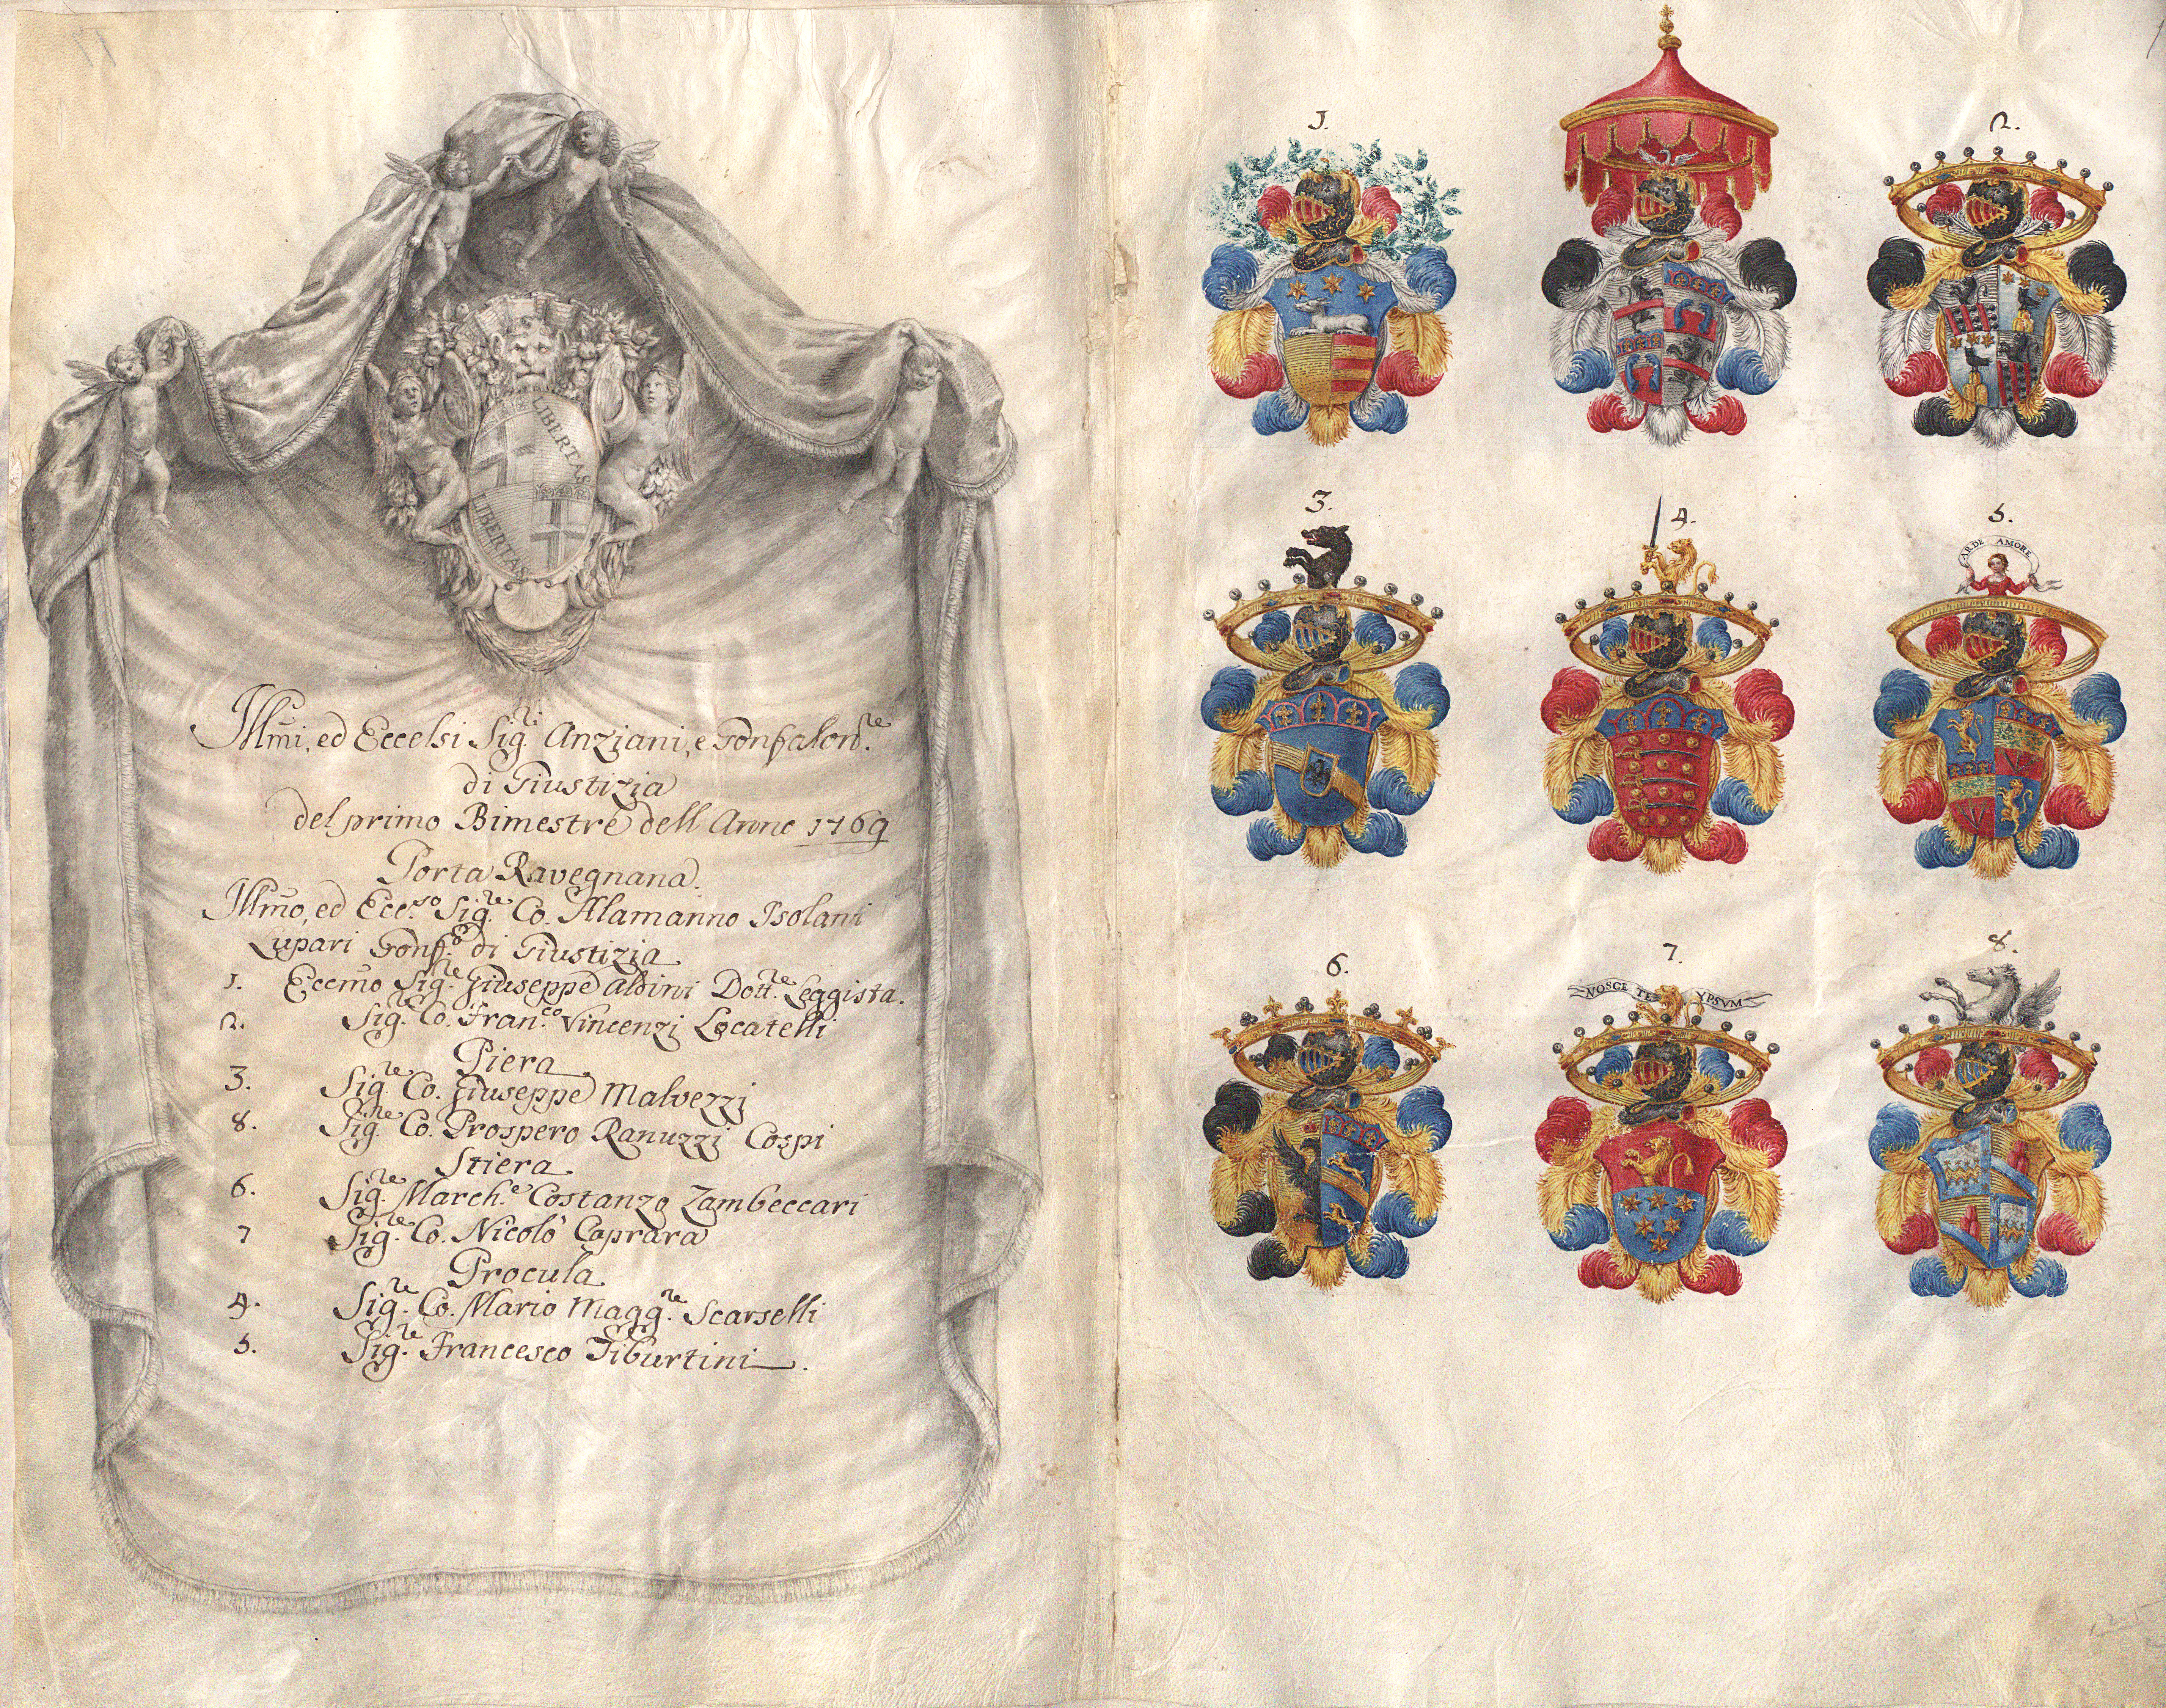 LIBERTAS
LIBERTAS
Illm̃i, ed Eccelsi Sig.ri Anziani, e Gonfalon.re
di Giustizia
del primo Bimestre dell Anno 1769
Porta Ravegnana.
Illm̃o, ed Ecc.so Sig.re Co. Alamanno Isolani
Lupari Gonf. di Giustizia
1. Eccm̃o Sig.re Giuseppe Aldini Dott.re Leggista.
2. Sig.re Co. Fran.co Vincenzi Locatelli
Piera
3. Sig.re Co. Giuseppe Malvezzi
8. Sig.re Co. Prospero Ranuzzi Cospi
Stiera
6. Sig.re March.e Costanzo Zambeccari
7 Sig.re Co. Nicolò Caprara
Procula
4. Sig.re Co. Mario Magg.re Scarselli
5. Sig.re Francesco Tiburtini.
1.
2.
3.
4.
5.
ARDE AMORE
6.
7.
8.
NOSCE TE YPSVM